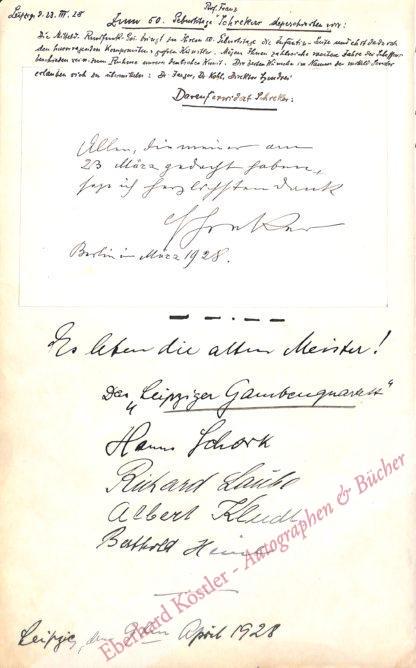 Leipzig, d. 23. III. 28
Prof. Franz
Zum 50. Geburtstage Schrekers depeschierten wir:
Die Mitteld. Rundfunk bringt zu Ihrem 50. Geburtstage die Infantin-Suite und ehrt dadurch
den hervorragenden Komponisten und großen Künstler. Mögen Ihnen zahlreiche weitere Jahre der Schaffens-
zum Ruhme unserer deutschen Kunst. Die besten Wünsche im Namen der
erlauben sich zu übermitteln: Dr. Jaeger, Dr. Kohl, Direktor Szendrei
Darauf erwidert Schreker:
Allen, die meiner am
23 März gedacht haben,
sage ich herzlichsten Dank
Schreker
Berlin im März 1928.
Es leben die alten Meister!
Das "Leipziger Gambenquartett"
Hanns Schork
Richard Laube
Albert
Berthold
Leipzig, den April 1928
Eberhard Köstler - Autographen & Bücher